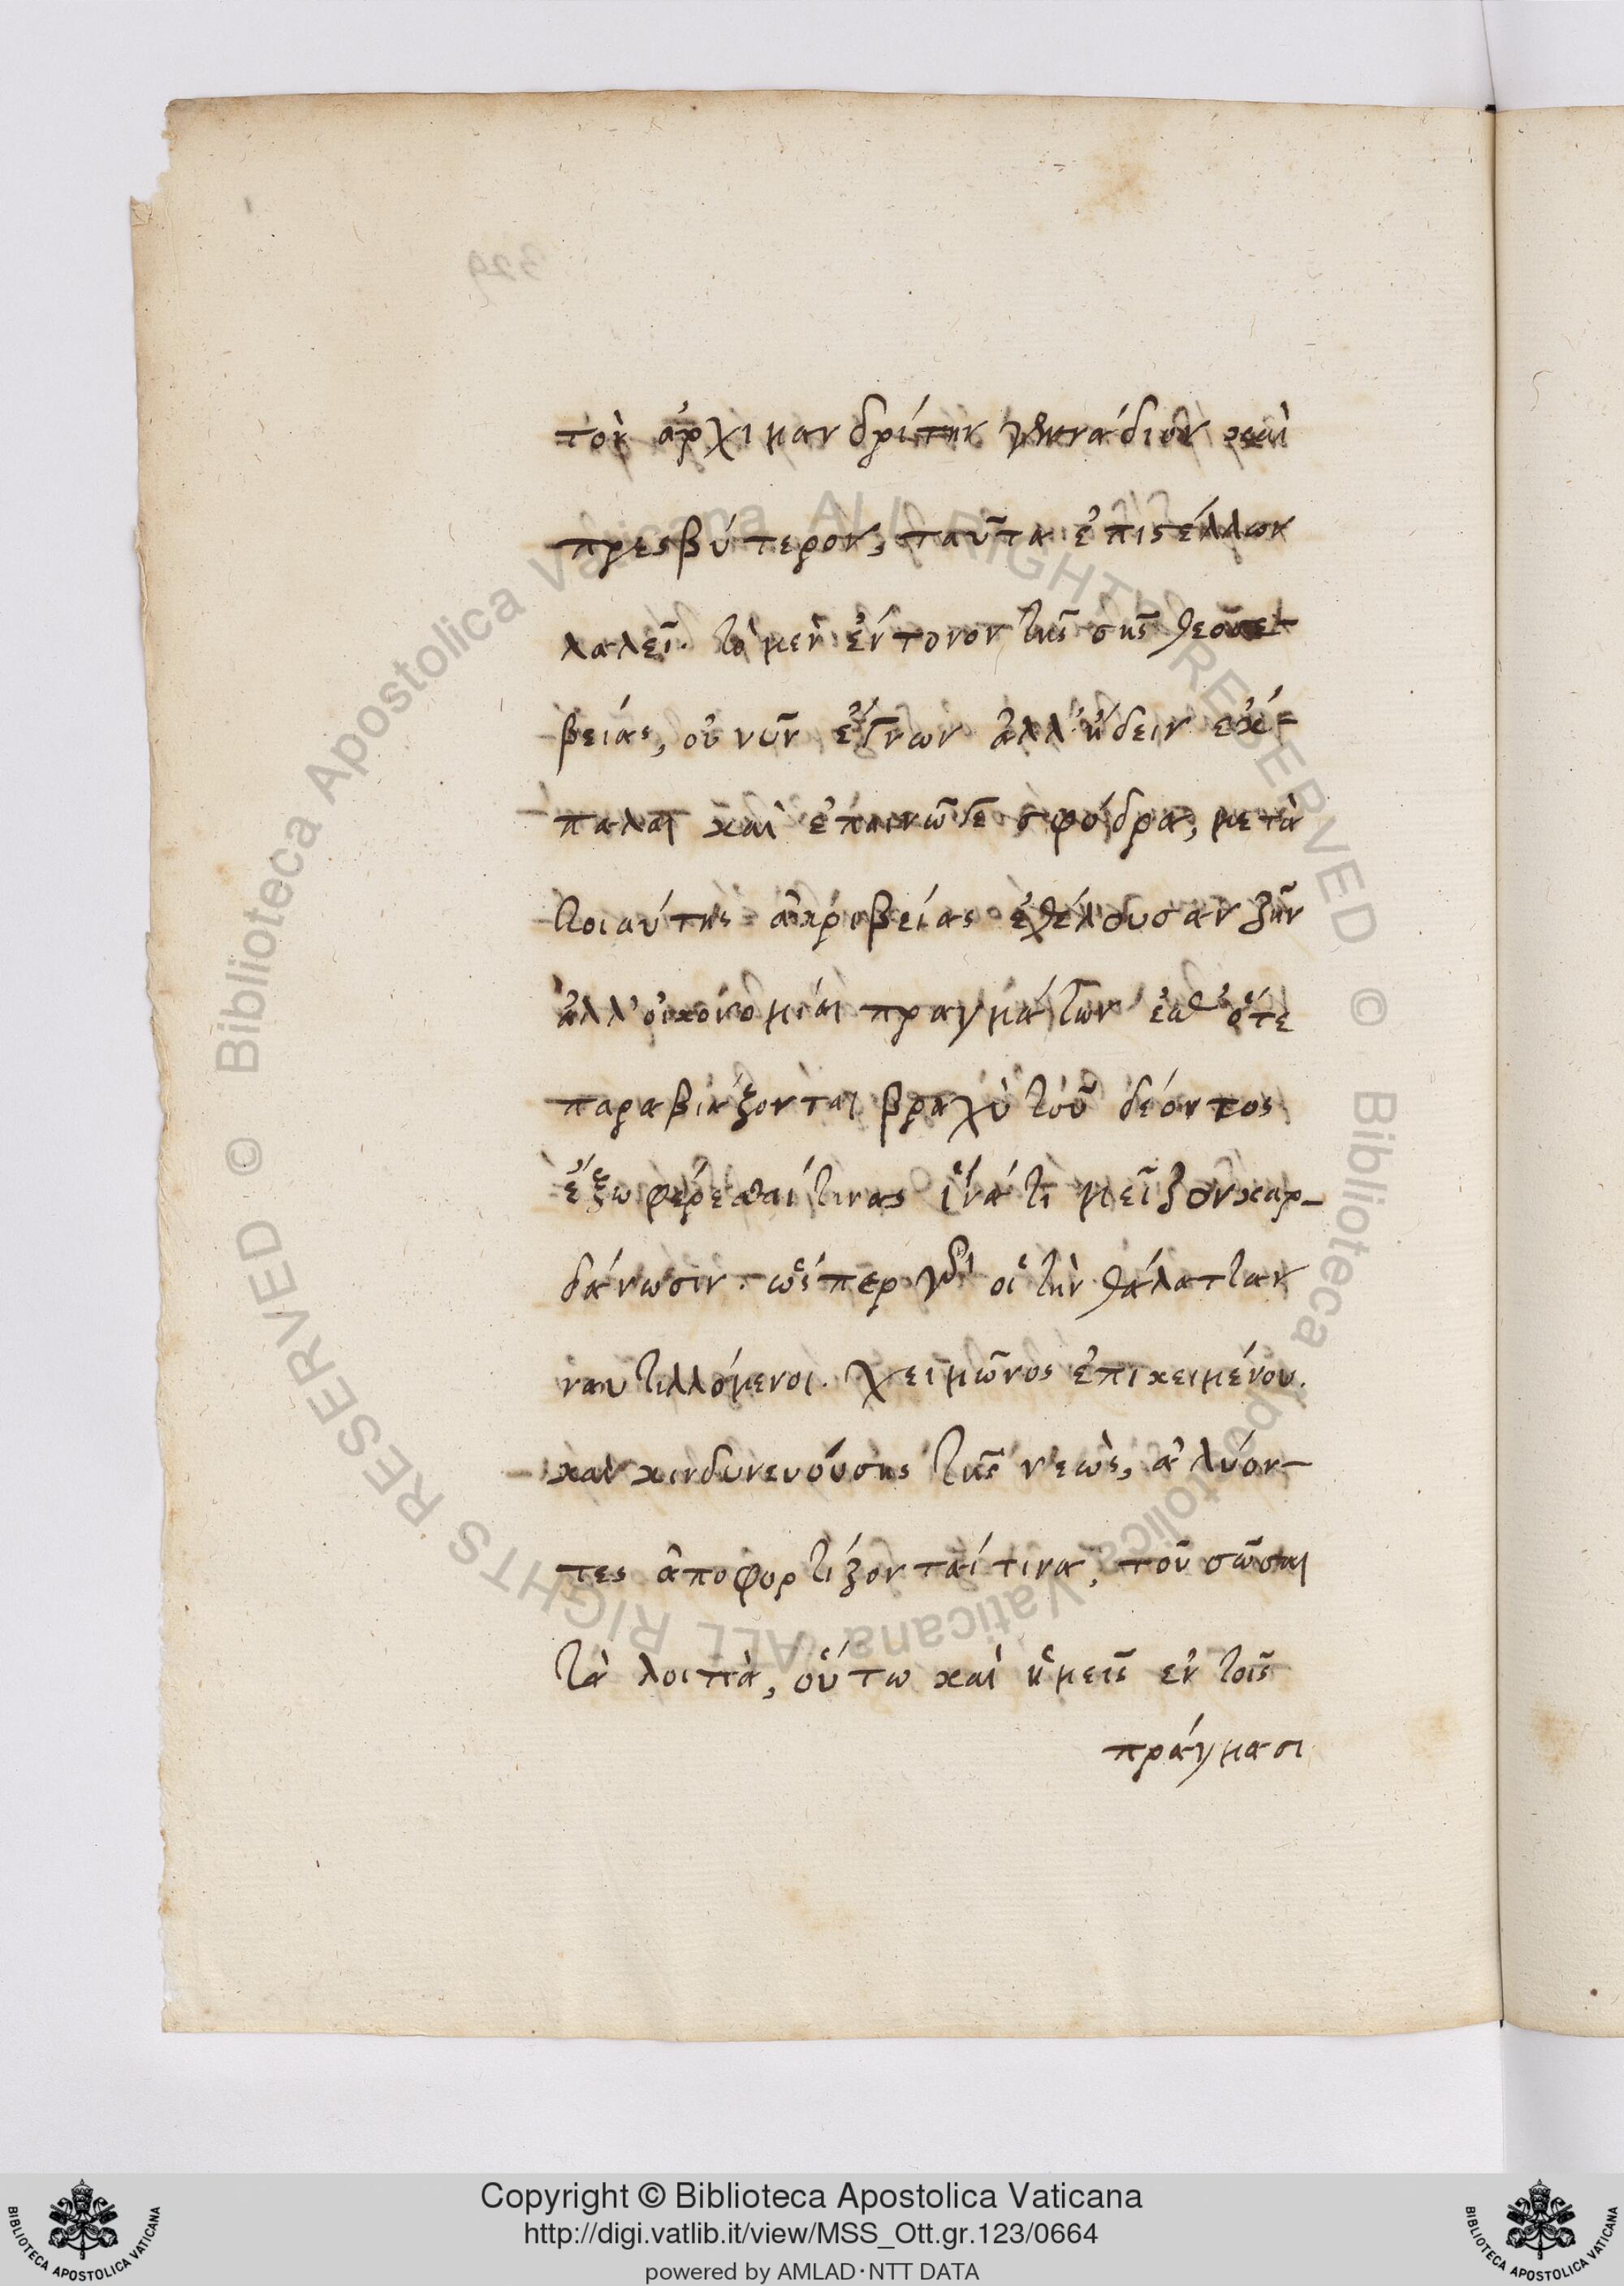 τὸν ἀρχιμανδρίτην γεννάδιον καὶ
πρεσβύτερον, ταῦτα ἐπιστέλλων
λαλεῖ. τὸ μὲν ἔντονον τῆς σῆς θεοσε-
βείας, οὐ νῦν ἔγνων ἀλλ' ἤδειν
πάλαι καὶ ἐπαινῶ γε σφόδρα, μετὰ
τοιαύτης ἀκριβείας ἐθέλουσαν ζῆν
ἀλλ' οἰκονομίαι πραγμάτων ἐσθ' ὅτε
παραβιάζονται βραχὺ τοῦ δέοντος
ἔξω φέρεσθαί τινας ἵνά τι μεῖζον καρ-
δάνωσιν. ὥσπερ γὰρ οἱ τὴν θάλατταν
ναυτιλλόμενοι. χειμῶνος ἐπικειμένου.
καὶ κινδυνευούσης τῆς νεὼς, ἀλύον-
τες ἀποφορτίζονταί τινα, τοῦ σῶσαι
τὰ λοιπὰ, οὕτω καὶ ἡμεῖς ἐν τοῖς
πράγμασι
Copyright © Biblioteca Apostolica Vaticana
http://digi.vatlib.it/view/MSS_Ott.gr.123/0664
powered by AMLAD·NTT DATA
BIBLIOTECA APOSTOLICA VATICANA
BIBLIOTECA APOSTOLICA VATICANA
© Biblioteca Apostolica Vaticana ALL RIGHTS RESERVED © Biblioteca Apostolica Vaticana ALL RIGHTS RESERVED